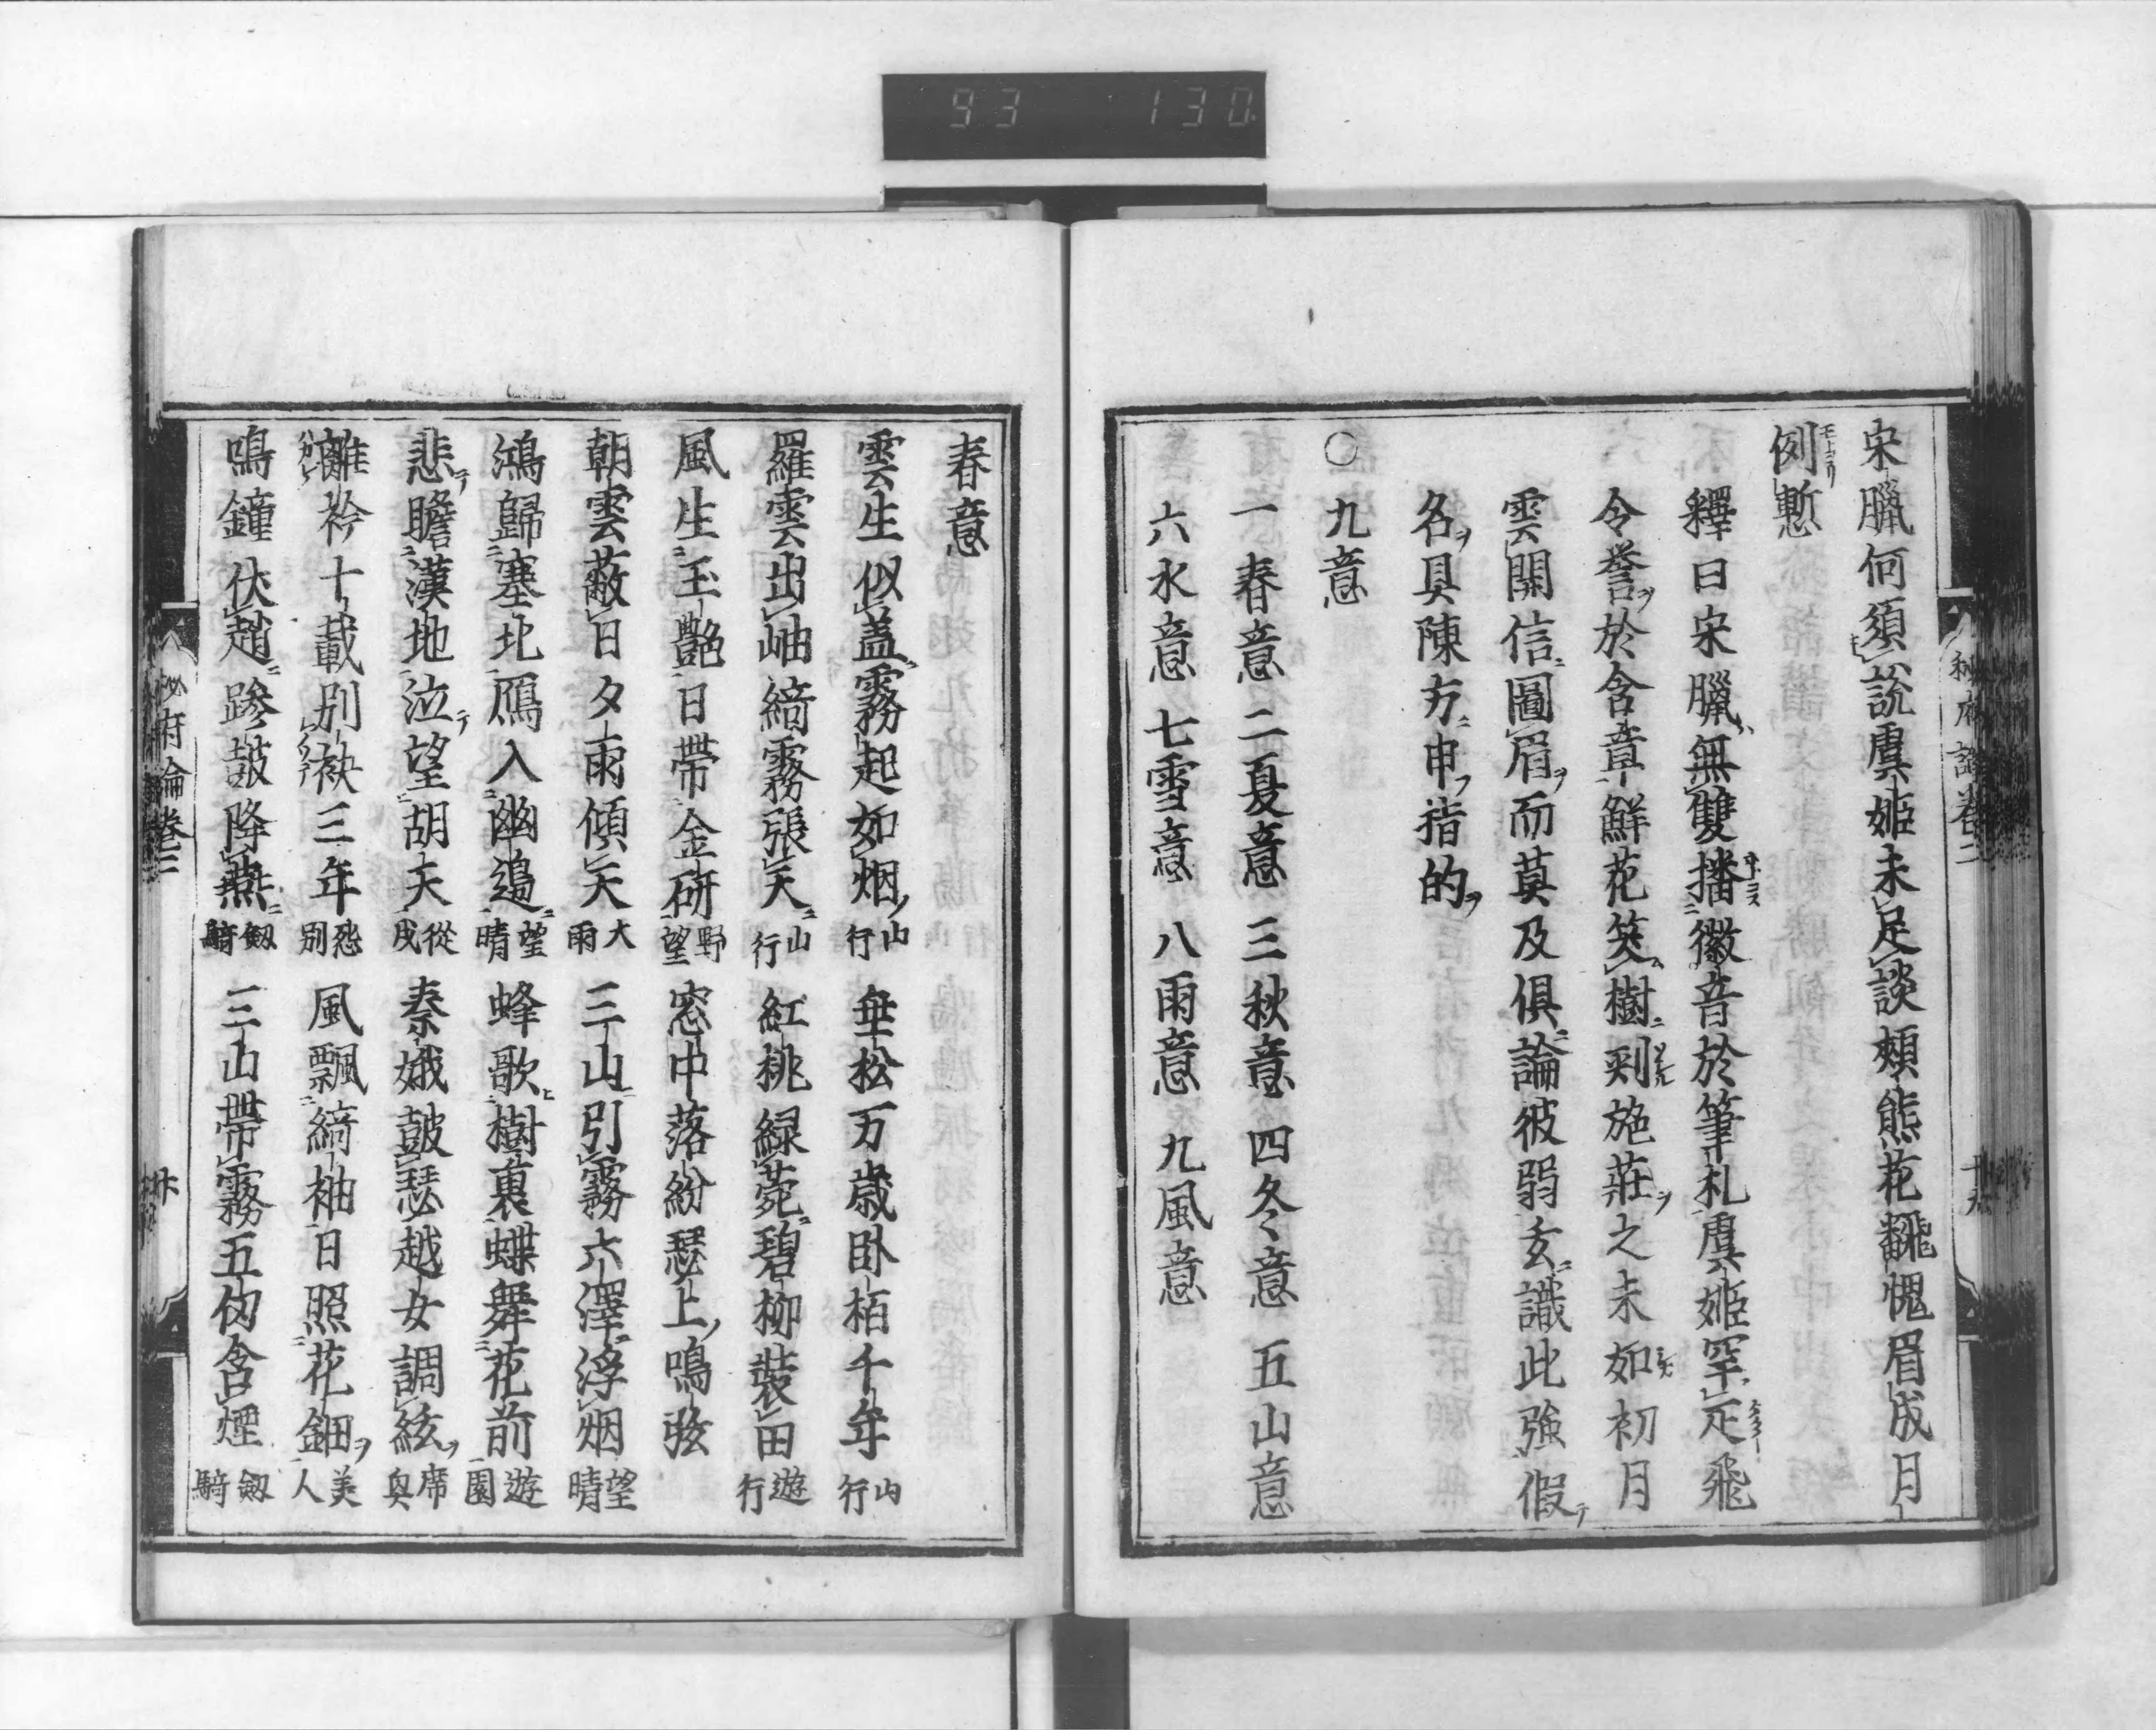 93 130
宋臘何須說虞姬未足談頰熊花飜愧眉成月
例慙
釋曰宋臘無雙播徽音於筆札虞姬罕疋飛
令譽於含章鮮花笑樹剩施莊之未如初月
雲開信圖眉而莫及俱論彼弱玄識此強假
名具陳方申指的
○九意
一春意二夏意三秋意四冬意五山意
六水意七雪意八雨意九風意
春意
雲生似蓋霧起如烟山行垂松万歲臥栢千年山行
羅雲出岫綺霧張天山行紅桃緑菀碧柳裝田遊行
風生玉艶日帶金研野望窓中落紛瑟上鳴弦
朝雲蔽日夕雨傾天大雨三山引霧六澤浮烟望晴
鴻歸塞北鴈入幽邉望晴蜂歌樹裏蝶舞花前遊園
悲瞻漢地泣望胡天從戍秦娥鼓瑟越女調絃席興
離衿十載別袂三年愁別風飄綺袖日照花鈿美人
鳴鐘伏趙跡鼓降燕劔騎三山帶霧五仭含煙劔騎
秘府論卷三 廿